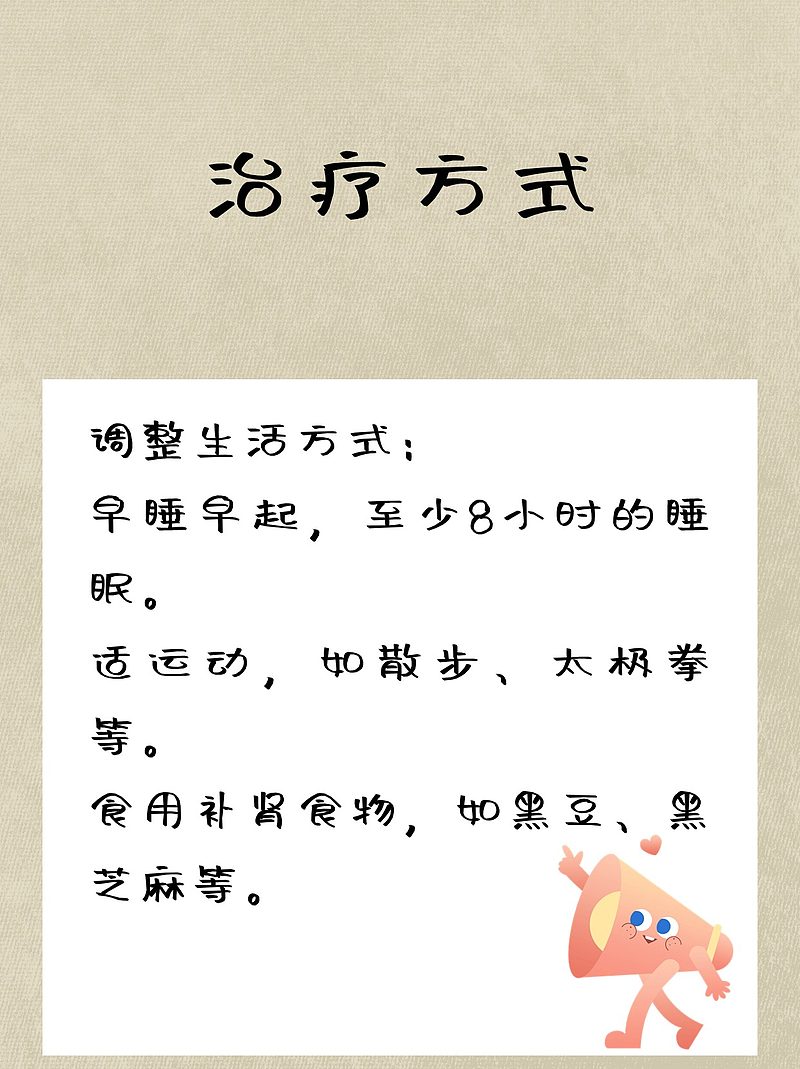 治疗方式
调整生活方式；
早睡早起，至少8小时的睡
眠。
适运动，如散步、太极拳
等。
食用补肾食物，如黑豆、黑
芝麻等。